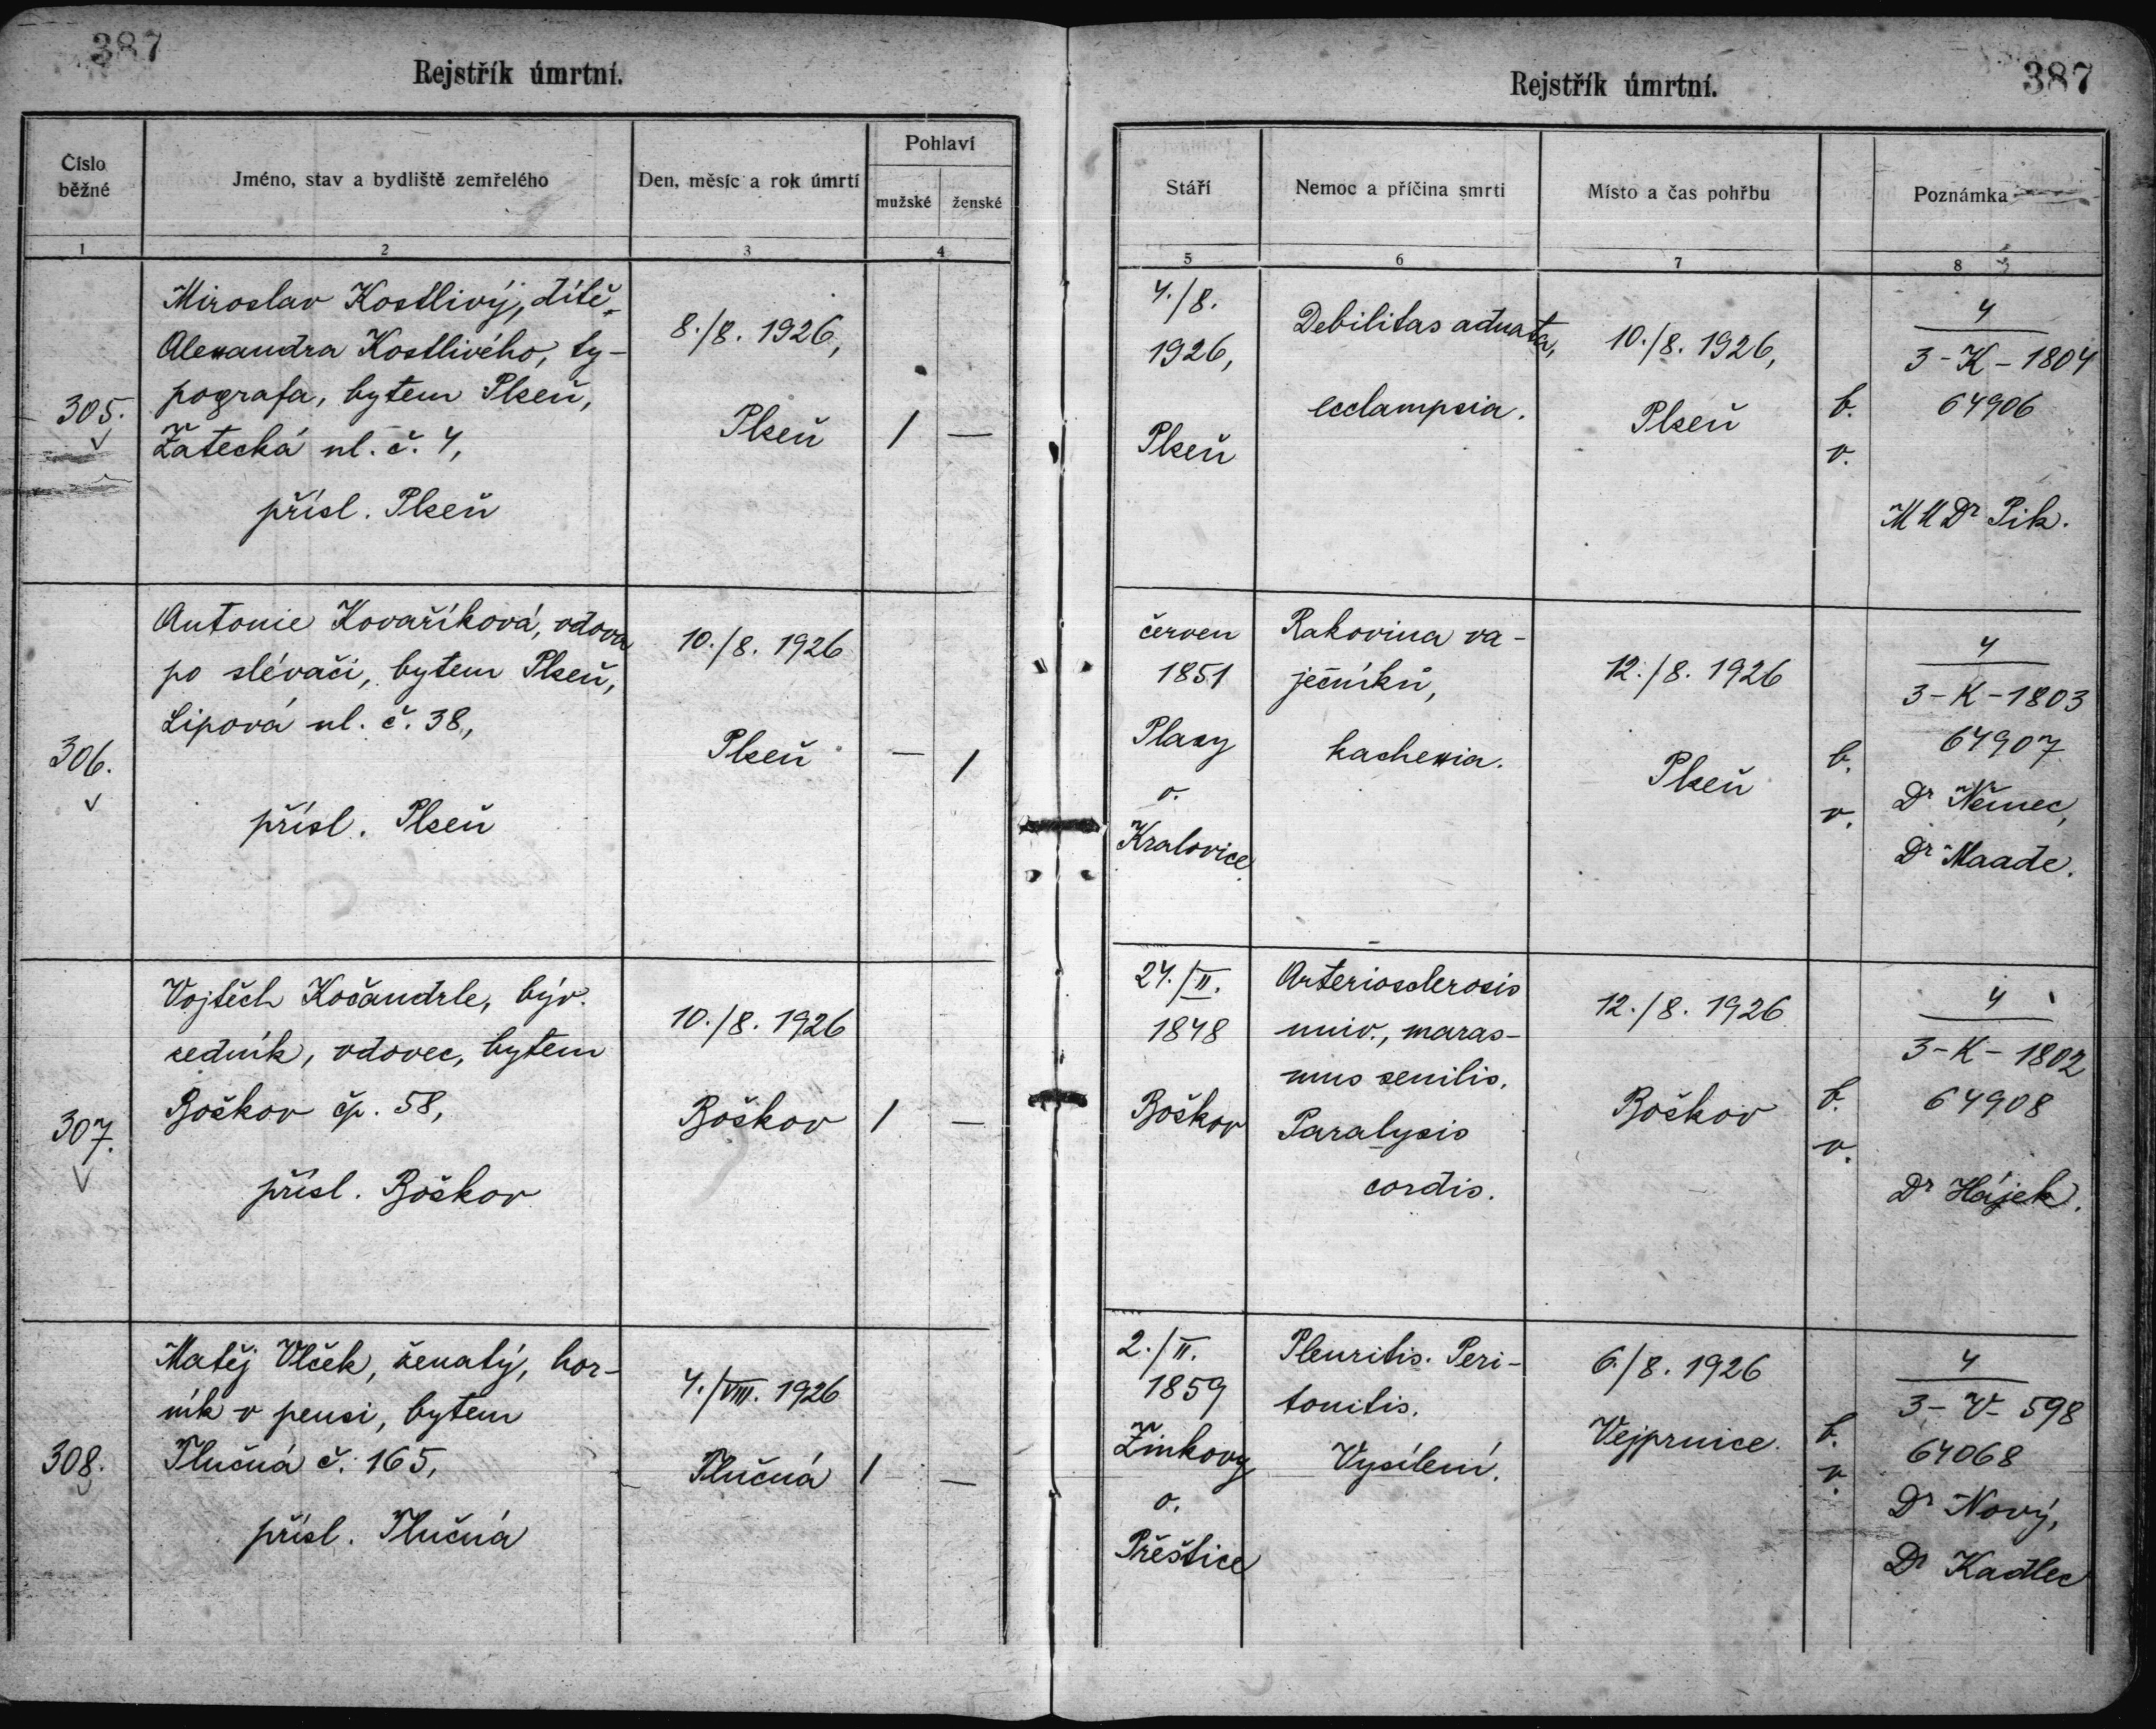 387
Rejstřík úmrtní.
Číslo běžné
Jméno, stav a bydliště zemřelého
Den, měsíc a rok úmrtí
Pohlaví
mužské
ženské
1
2
3
4
305.
Miroslav Kostlivý, dítě
Alexandra Kostlivého, ty-
pografa, bytem Plzeň,
Žatecká ul. č. 4,
přísl. Plzeň
8./8. 1926,
Plzeň
/
—
306.
Antonie Kovaříková, vdova
po slévači, bytem Plzeň,
Lipová ul. č. 38,
přísl. Plzeň
10./8. 1926
Plzeň
—
/
307.
Vojtěch Kočandrle, býv.
sedník, vdovec, bytem
Božkov čp. 58,
přísl. Božkov
10./8. 1926
Božkov
/
—
308.
Matěj Vlček, ženatý, hor-
ník v pensi, bytem
Tlučná č. 165,
přísl. Tlučná
4./VIII. 1926
Tlučná
/
—
Rejstřík úmrtní.
387
Stáří
Nemoc a příčina smrti
Místo a čas pohřbu
Poznámka
5
6
7
8
4./8.
1926,
Plzeň
Debilitas adnata,
ecclampsia.
10./8. 1926,
Plzeň
b.
v.
4
3-K-1804
64906
MUDr Pik.
červen
1851
Plasy
o.
Kralovice
Rakovina va-
ječníků,
kachexia.
12./8. 1926
Plzeň
b.
v.
4
3-K-1803
64907
Dr Němec,
Dr Maade.
24./II.
1848
Božkov
Arteriosclerosis
univ., maras-
mus senilis.
Paralysis
cordis.
12./8. 1926
Božkov
b.
v.
4
3-K-1802
64908
Dr Hájek.
2./II.
1859
Žinkovy
o.
Přeštice
Pleuritis. Peri-
tonitis.
Vysílení.
6./8. 1926
Vejprnice.
b.
v.
4
3-V-598
64068
Dr Nový,
Dr Kadlec